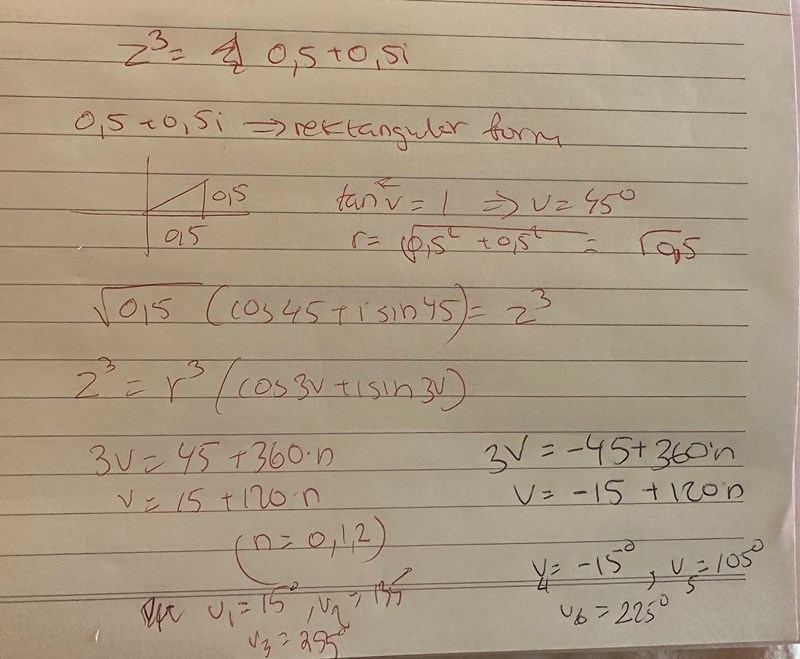 z³ = 0,5 + 0,5i
0,5 + 0,5i ⇒ rektangular form
0,5
0,5
tan v = 1 ⇒ v = 45°
r = √0,5² + 0,5² = √0,5
√0,5 (cos 45 + i sin 45) = z³
z³ = r³ (cos 3v + i sin 3v)
3v = 45 + 360·n
v = 15 + 120·n
(n = 0,1,2)
v₁ = 15°, v₂ = 135°
v₃ = 255°
3v = -45 + 360·n
v = -15 + 120n
v₄ = -15°, v₅ = 105°
v₆ = 225°